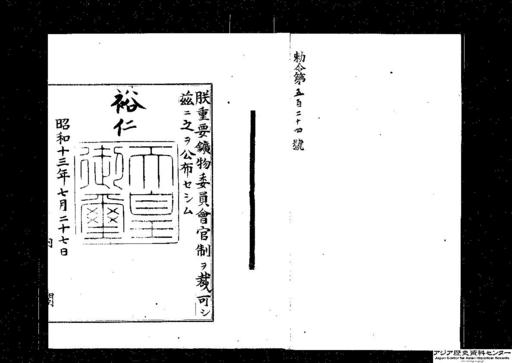 勅令第五百二十四號
朕重要鑛物委員會官制ヲ裁可シ
茲ニ之ヲ公布セシム
裕仁
天皇御璽
昭和十三年七月二十七日
内閣
アジア歴史資料センター
Japan Center for Asian Historical Records